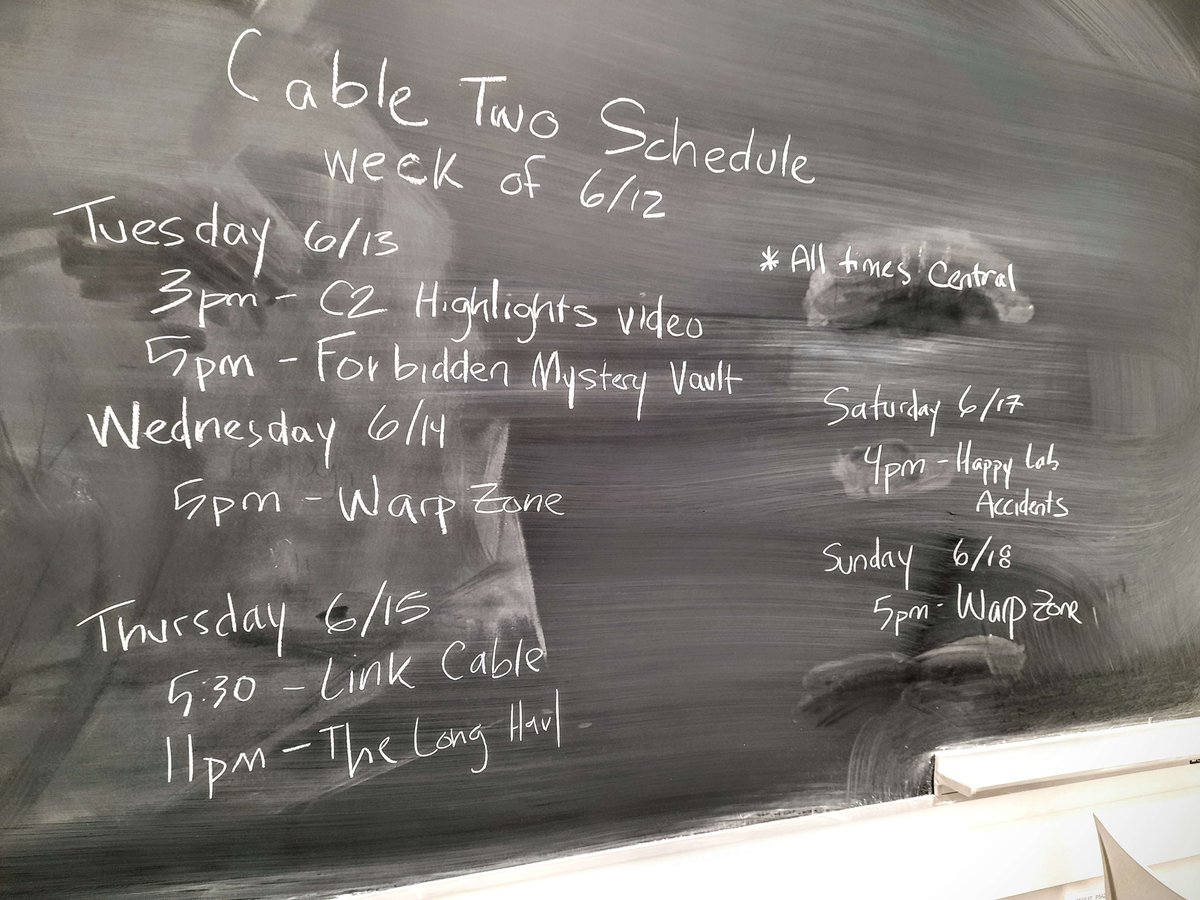 Cable Two Schedule
week of 6/12
Tuesday 6/13
3pm - C2 Highlights video
5pm - Forbidden Mystery Vault
Wednesday 6/14
5pm - Warp Zone
Thursday 6/15
5:30 - Link Cable
11pm - The Long Haul
* All times Central
Saturday 6/17
4pm - Happy Lab
Accidents
Sunday 6/18
5pm - Warp Zone